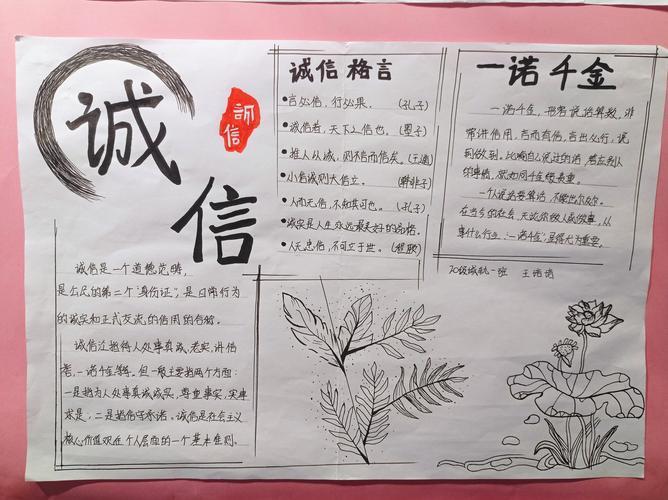 诚信
诚信
诚信是一个道德范畴,
是公民的第二个"身份证",是日常行为
的诚实和正式交流的信用的合称。
诚信泛指待人处事真诚、老实、讲信
者,一诺千金等。但一般主要指两个方面:
一是指为人处事真诚诚实,尊重事实,实事
求是;二是指信守承诺。诚信是社会主义
核心价值观在个人层面的一个基本准则。
诚信格言
言必信,行必果。(孔子)
诚信者,天下之信也。(墨子)
推人以诚,则不言而信矣。(王通)
小信诚则大信立。(韩非子)
人而无信,不知其可也。(孔子)
诚实是人生永远最美好的品格。
人无忠信,不可立于世。(程颐)
一诺千金
一诺千金,形容说话算数,非
常讲信用,言而有信,言出必行,说
到做到。比喻自己说过的话,答应别人
的事情,就如同千金般贵重。
一个人说话要算话,不能出尔反尔。
在当今的社会,无论你做人或做事,从
事什么行业,"一诺千金"显得尤为重要。
20级城轨一班 王